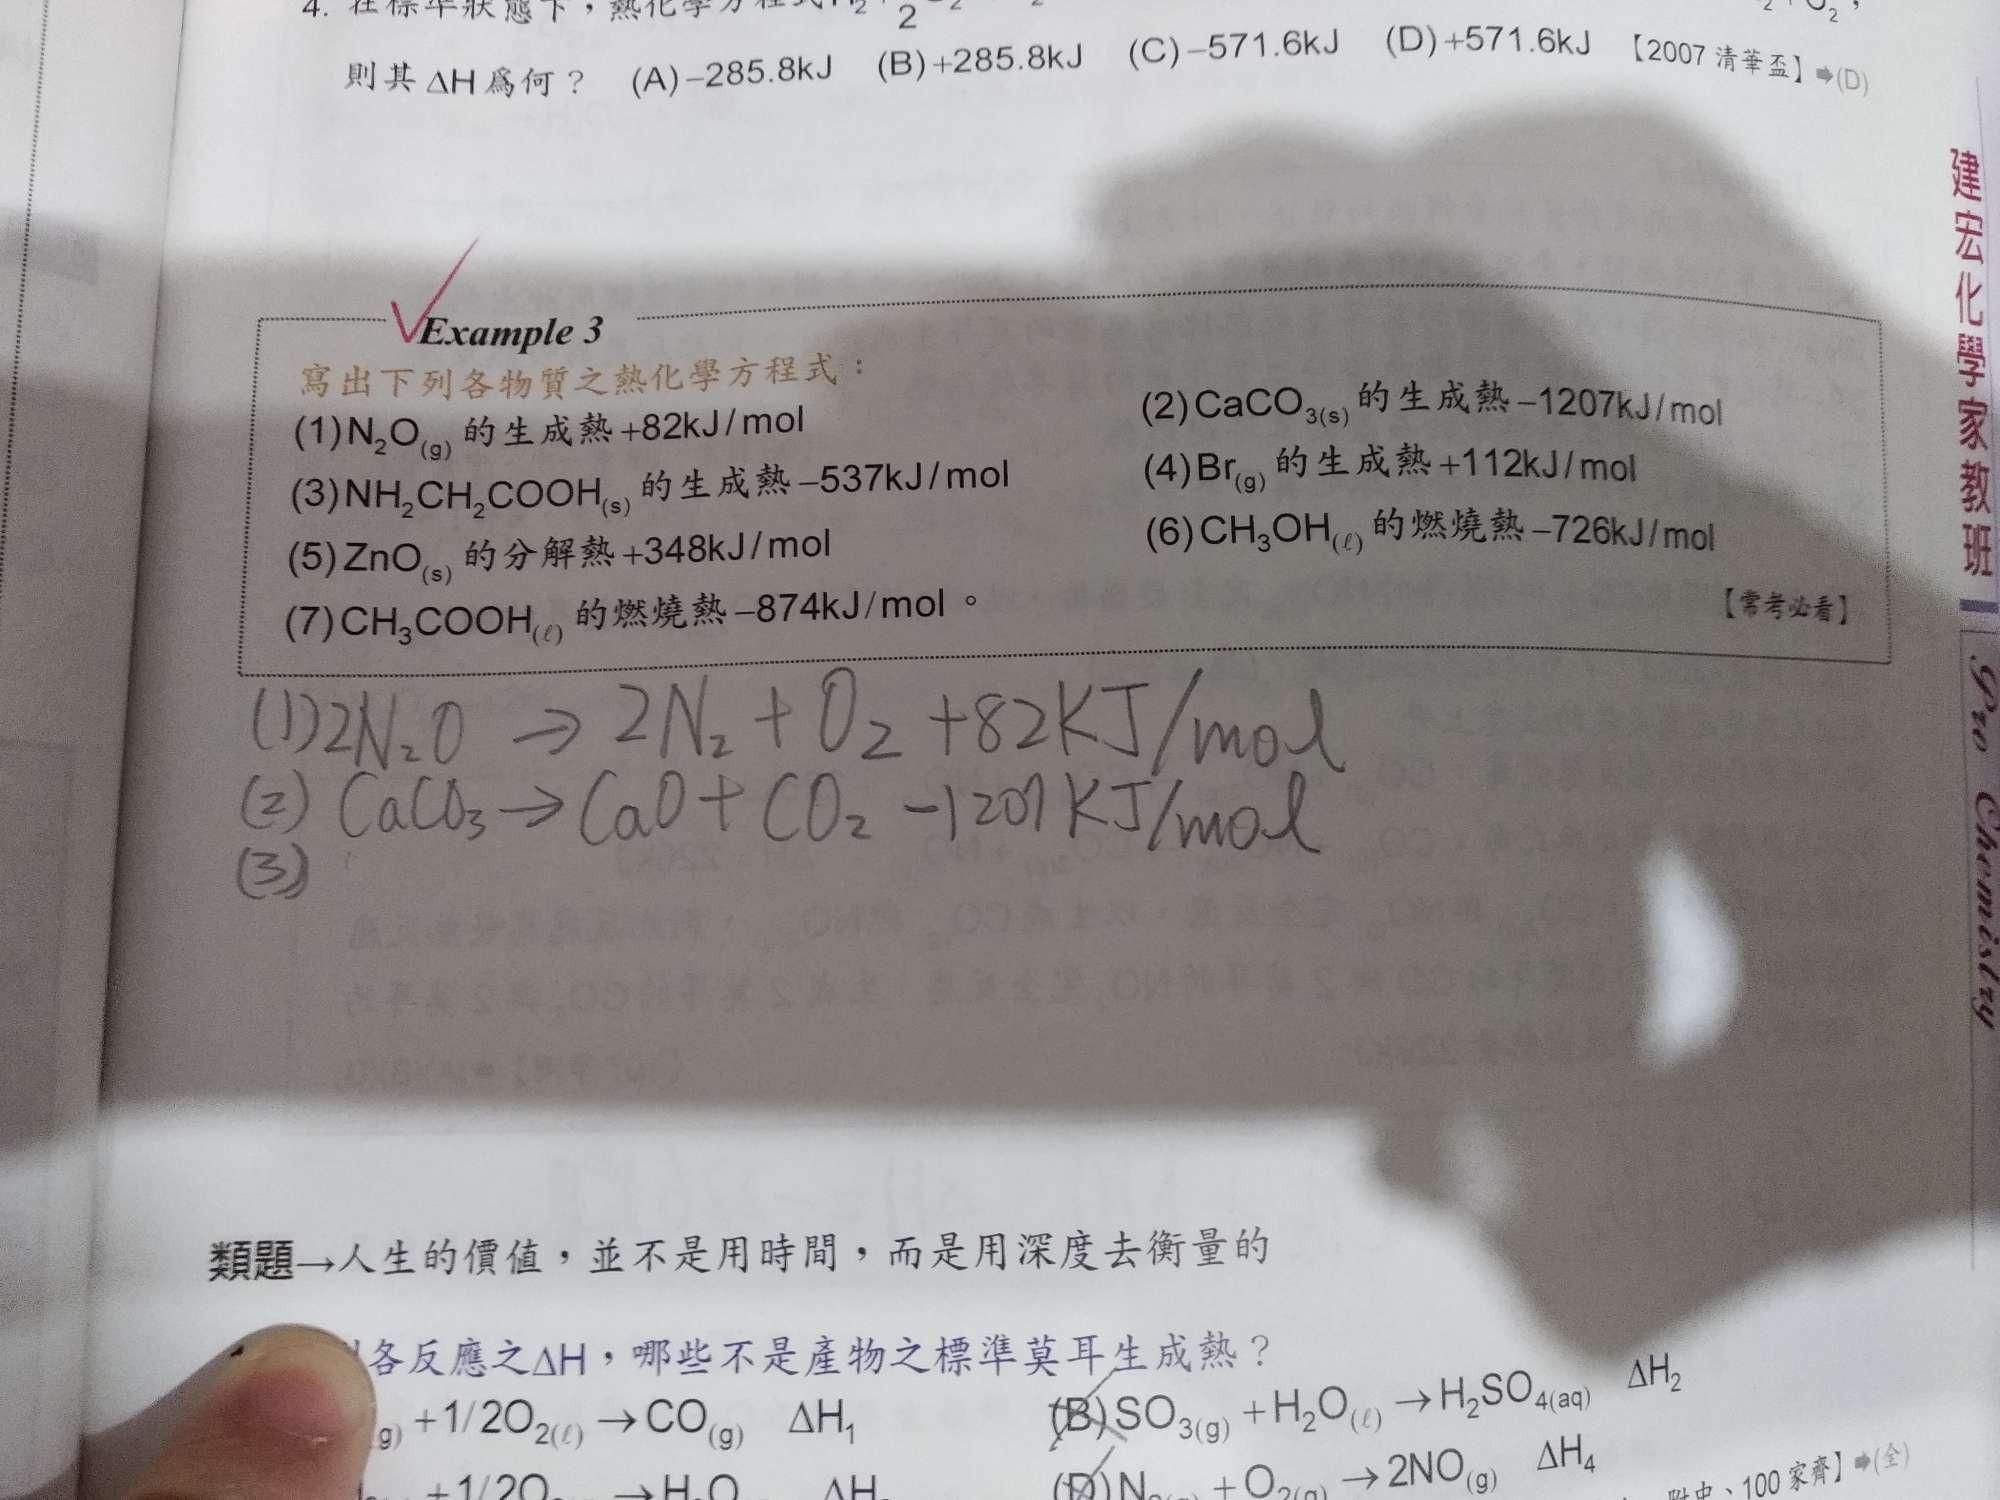 4. 在標準狀態下，熱化學方程式H₂+
則其 ΔH 為何？ (A)−285.8kJ (B)+285.8kJ (C)−571.6kJ (D)+571.6kJ 【2007 清華盃】➡(D)
Example 3
寫出下列各物質之熱化學方程式：
(1)N₂O(g) 的生成熱+82kJ/mol (2)CaCO₃(s) 的生成熱−1207kJ/mol
(3)NH₂CH₂COOH(s) 的生成熱−537kJ/mol (4)Br(g) 的生成熱+112kJ/mol
(5)ZnO(s) 的分解熱+348kJ/mol (6)CH₃OH(ℓ) 的燃燒熱−726kJ/mol
(7)CH₃COOH(ℓ) 的燃燒熱−874kJ/mol。 【常考必看】
(1)2N₂O → 2N₂ + O₂ +82KJ/mol
(2) CaCO₃→CaO+ CO₂ -1207KJ/mol
(3)
類題→人生的價值，並不是用時間，而是用深度去衡量的
各反應之ΔH，哪些不是產物之標準莫耳生成熱？
(g) +1/2O₂(ℓ) →CO(g) ΔH₁ (B)SO₃(g) +H₂O(ℓ) →H₂SO₄(aq) ΔH₂
+1/2O₂ →H₂O (D)N₂(g) +O₂(g) →2NO(g) ΔH₄
附中、100 家齊】➡(全)
建宏化學家教班
Pro Chemistry